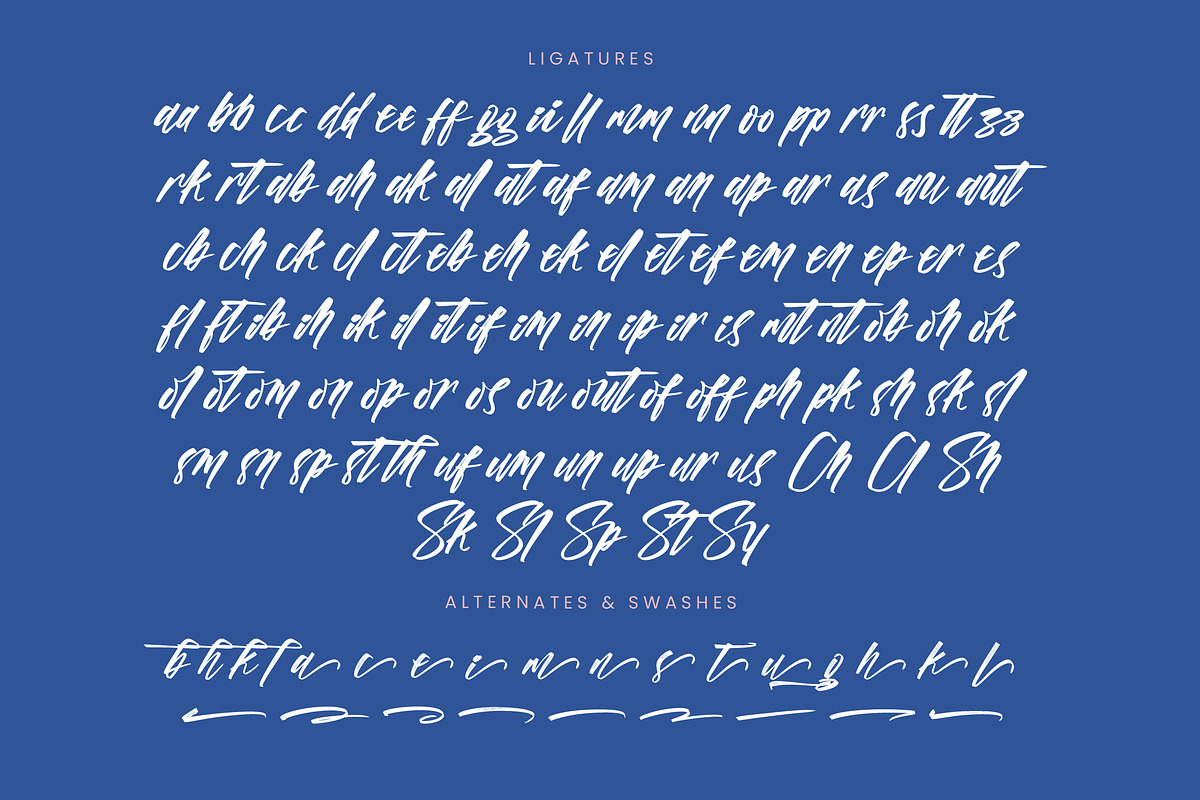 LIGATURES
aa bb cc dd ee ff gg ii ll mm nn oo pp rr ss tt zz
rk rt ab ah ak al at af am an ap ar as au aut
cb ch ck cl ct eb eh ek el et ef em en ep er es
fl ft ib ih ik il it if im in ip ir is mt nt ob oh ok
ol ot om on op or os ou out of off ph pk sh sk sl
sm sn sp st th uf um un up ur us Ch Cl Sh
Sk Sl Sp St Sy
ALTERNATES & SWASHES
b h k l a c e i m n s t u g h k l